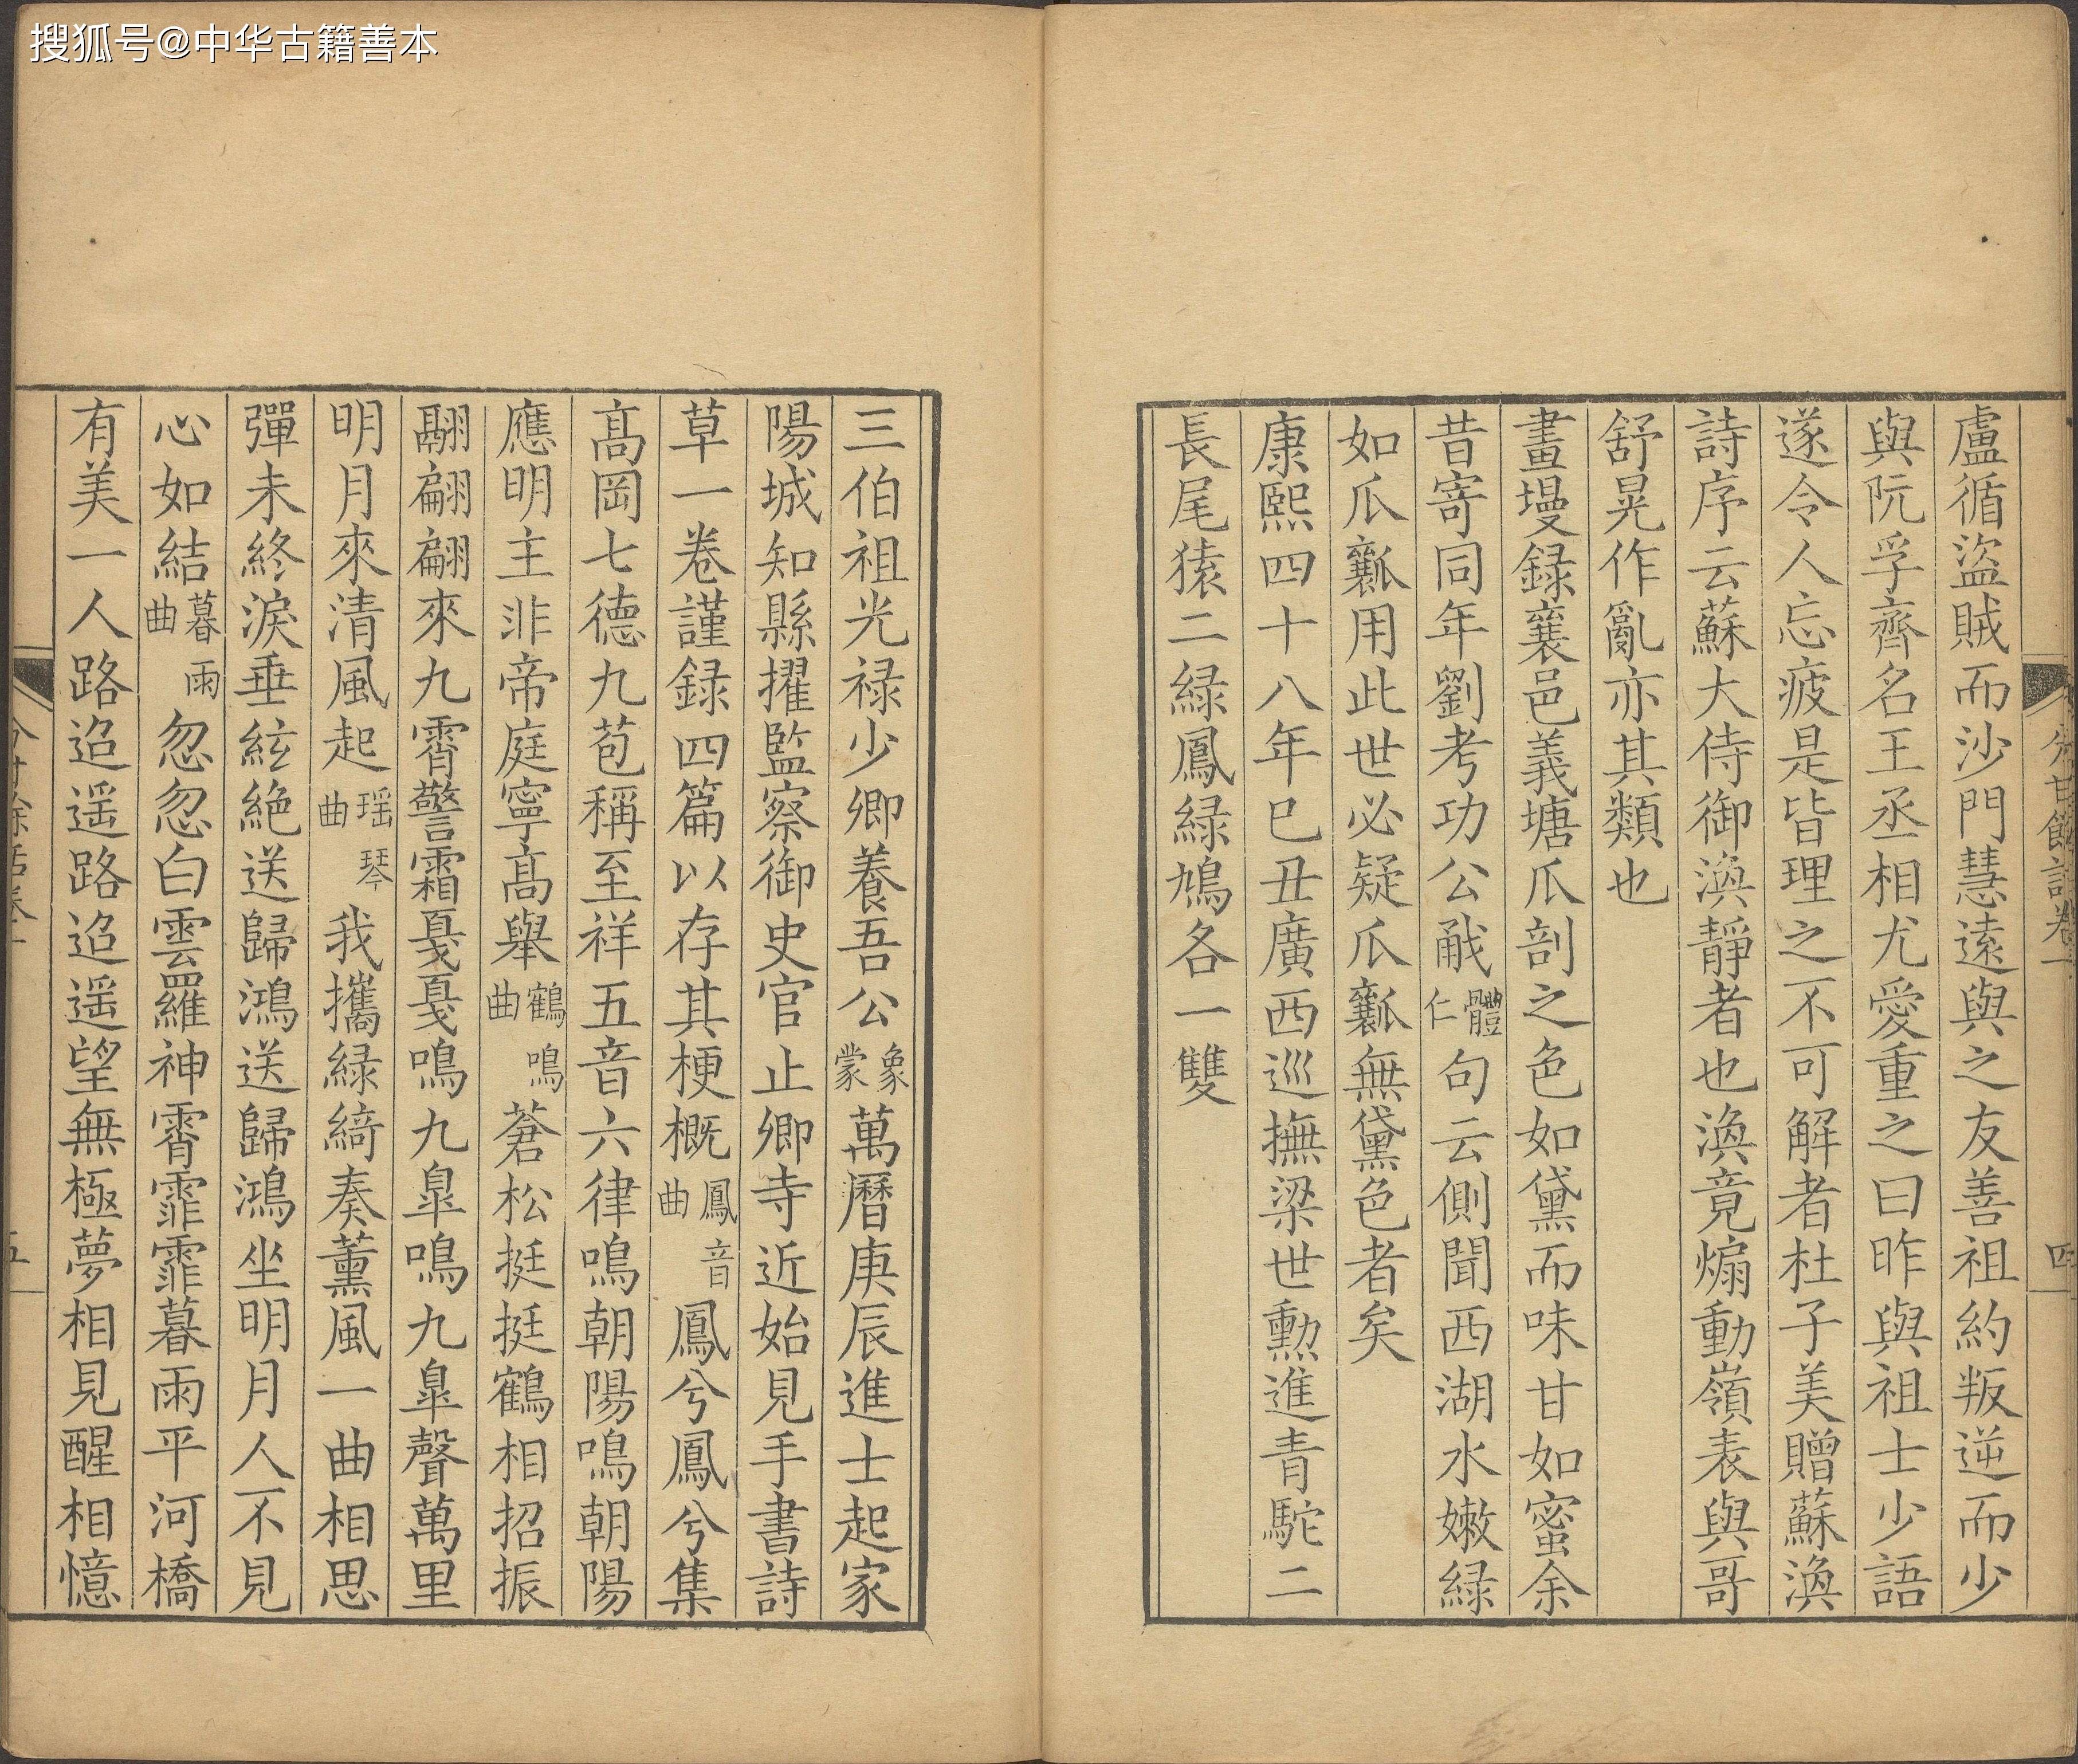 搜狐号@中华古籍善本
盧循盜賊而沙門慧遠與之友善祖約叛逆而少
與阮孚齊名王丞相尤愛重之曰昨與祖士少語
遂令人忘疲是皆理之不可解者杜子美贈蘇渙
詩序云蘇大侍御渙靜者也渙竟煽動嶺表與哥
舒晃作亂亦其類也
畫墁録襄邑義塘瓜剖之色如黛而味甘如蜜余
昔寄同年劉考功公㦷體仁句云側聞西湖水嫩緑
如瓜瓤用此世必疑瓜瓤無黛色者矣
康熙四十八年巳丑廣西巡撫梁世勲進青駝二
長尾猿二緑鳳緑鳩各一雙
分甘餘話卷一
四
三伯祖光禄少卿養吾公象蒙萬曆庚辰進士起家
陽城知縣擢監察御史官止卿寺近始見手書詩
草一卷謹録四篇以存其梗概鳳音曲鳳兮鳳兮集
高岡七德九苞稱至祥五音六律鳴朝陽鳴朝陽
應明主非帝庭寧高舉鶴鳴曲蒼松挺挺鶴相招振
翮翩翩來九霄警霜戛戛鳴九臯鳴九臯聲萬里
明月來清風起瑶琴曲我攜緑綺奏薰風一曲相思
彈未終淚垂絃絶送歸鴻送歸鴻坐明月人不見
心如結暮雨曲忽忽白雲羅神霄霏霏暮雨平河橋
有美一人路迢遥路迢遥望無極夢相見醒相憶
五